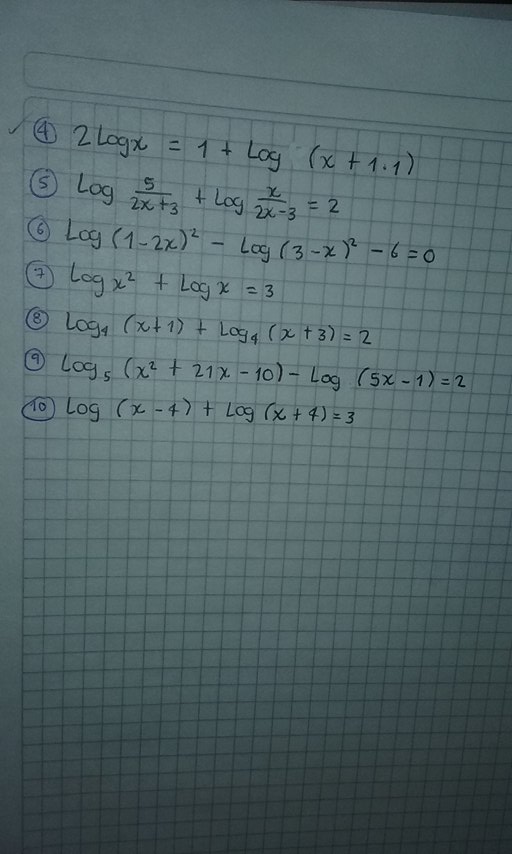 4 2 Log x = 1 + Log (x + 1.1)
5 Log 5/(2x+3) + Log x/(2x-3) = 2
6 Log (1-2x)² - Log (3-x)² - 6 = 0
7 Log x² + Log x = 3
8 Log₄ (x+1) + Log₄ (x+3) = 2
9 Log₅ (x² + 21x - 10) - Log (5x - 1) = 2
10 Log (x-4) + Log (x+4) = 3